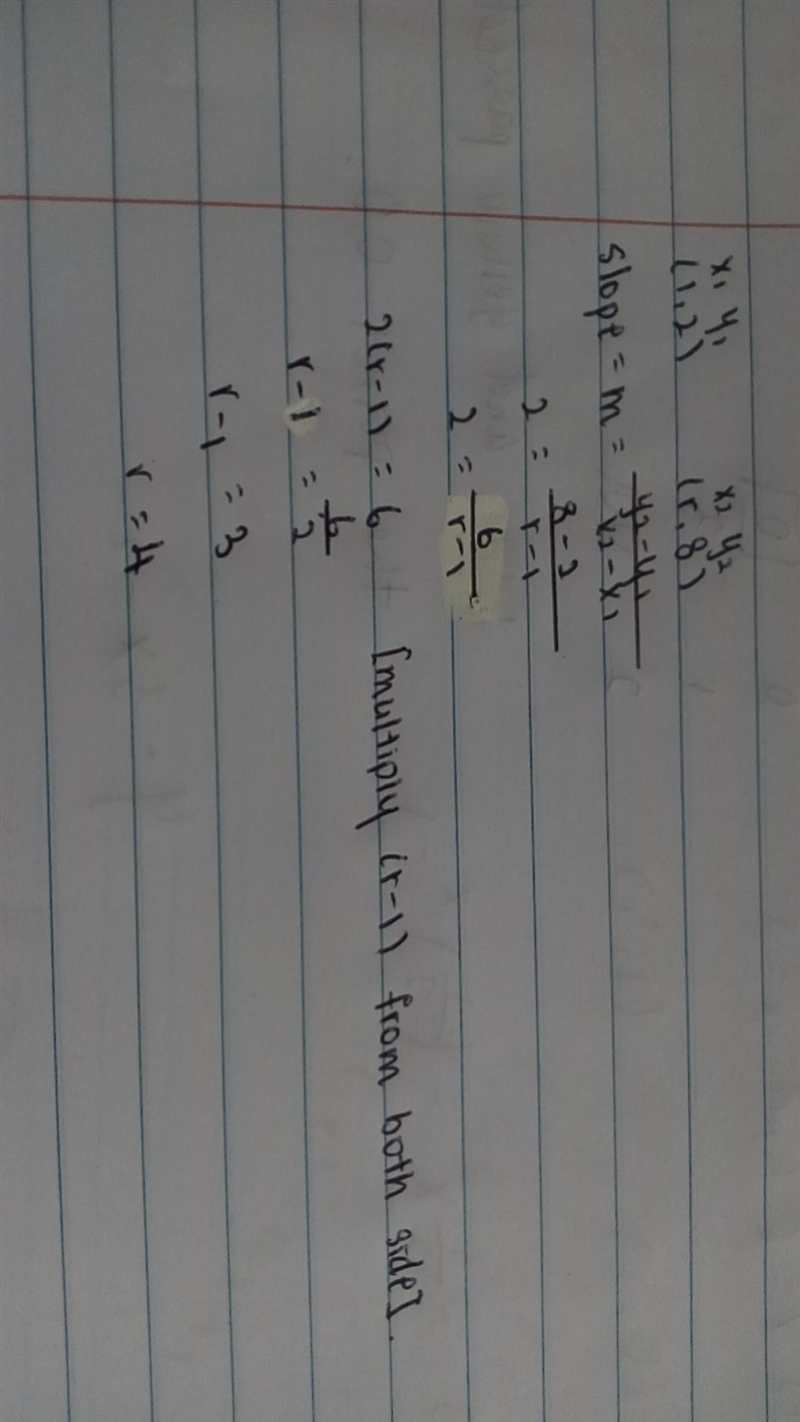 x₁ y₁ x₂ y₂
(1,2) (r,8)
slope = m = y₂-y₁/x₂-x₁
2 = 8-2/r-1
2 = 6/r-1
2(r-1) = 6 [multiply (r-1) from both side].
r-1 = 6/2
r-1 = 3
r = 4